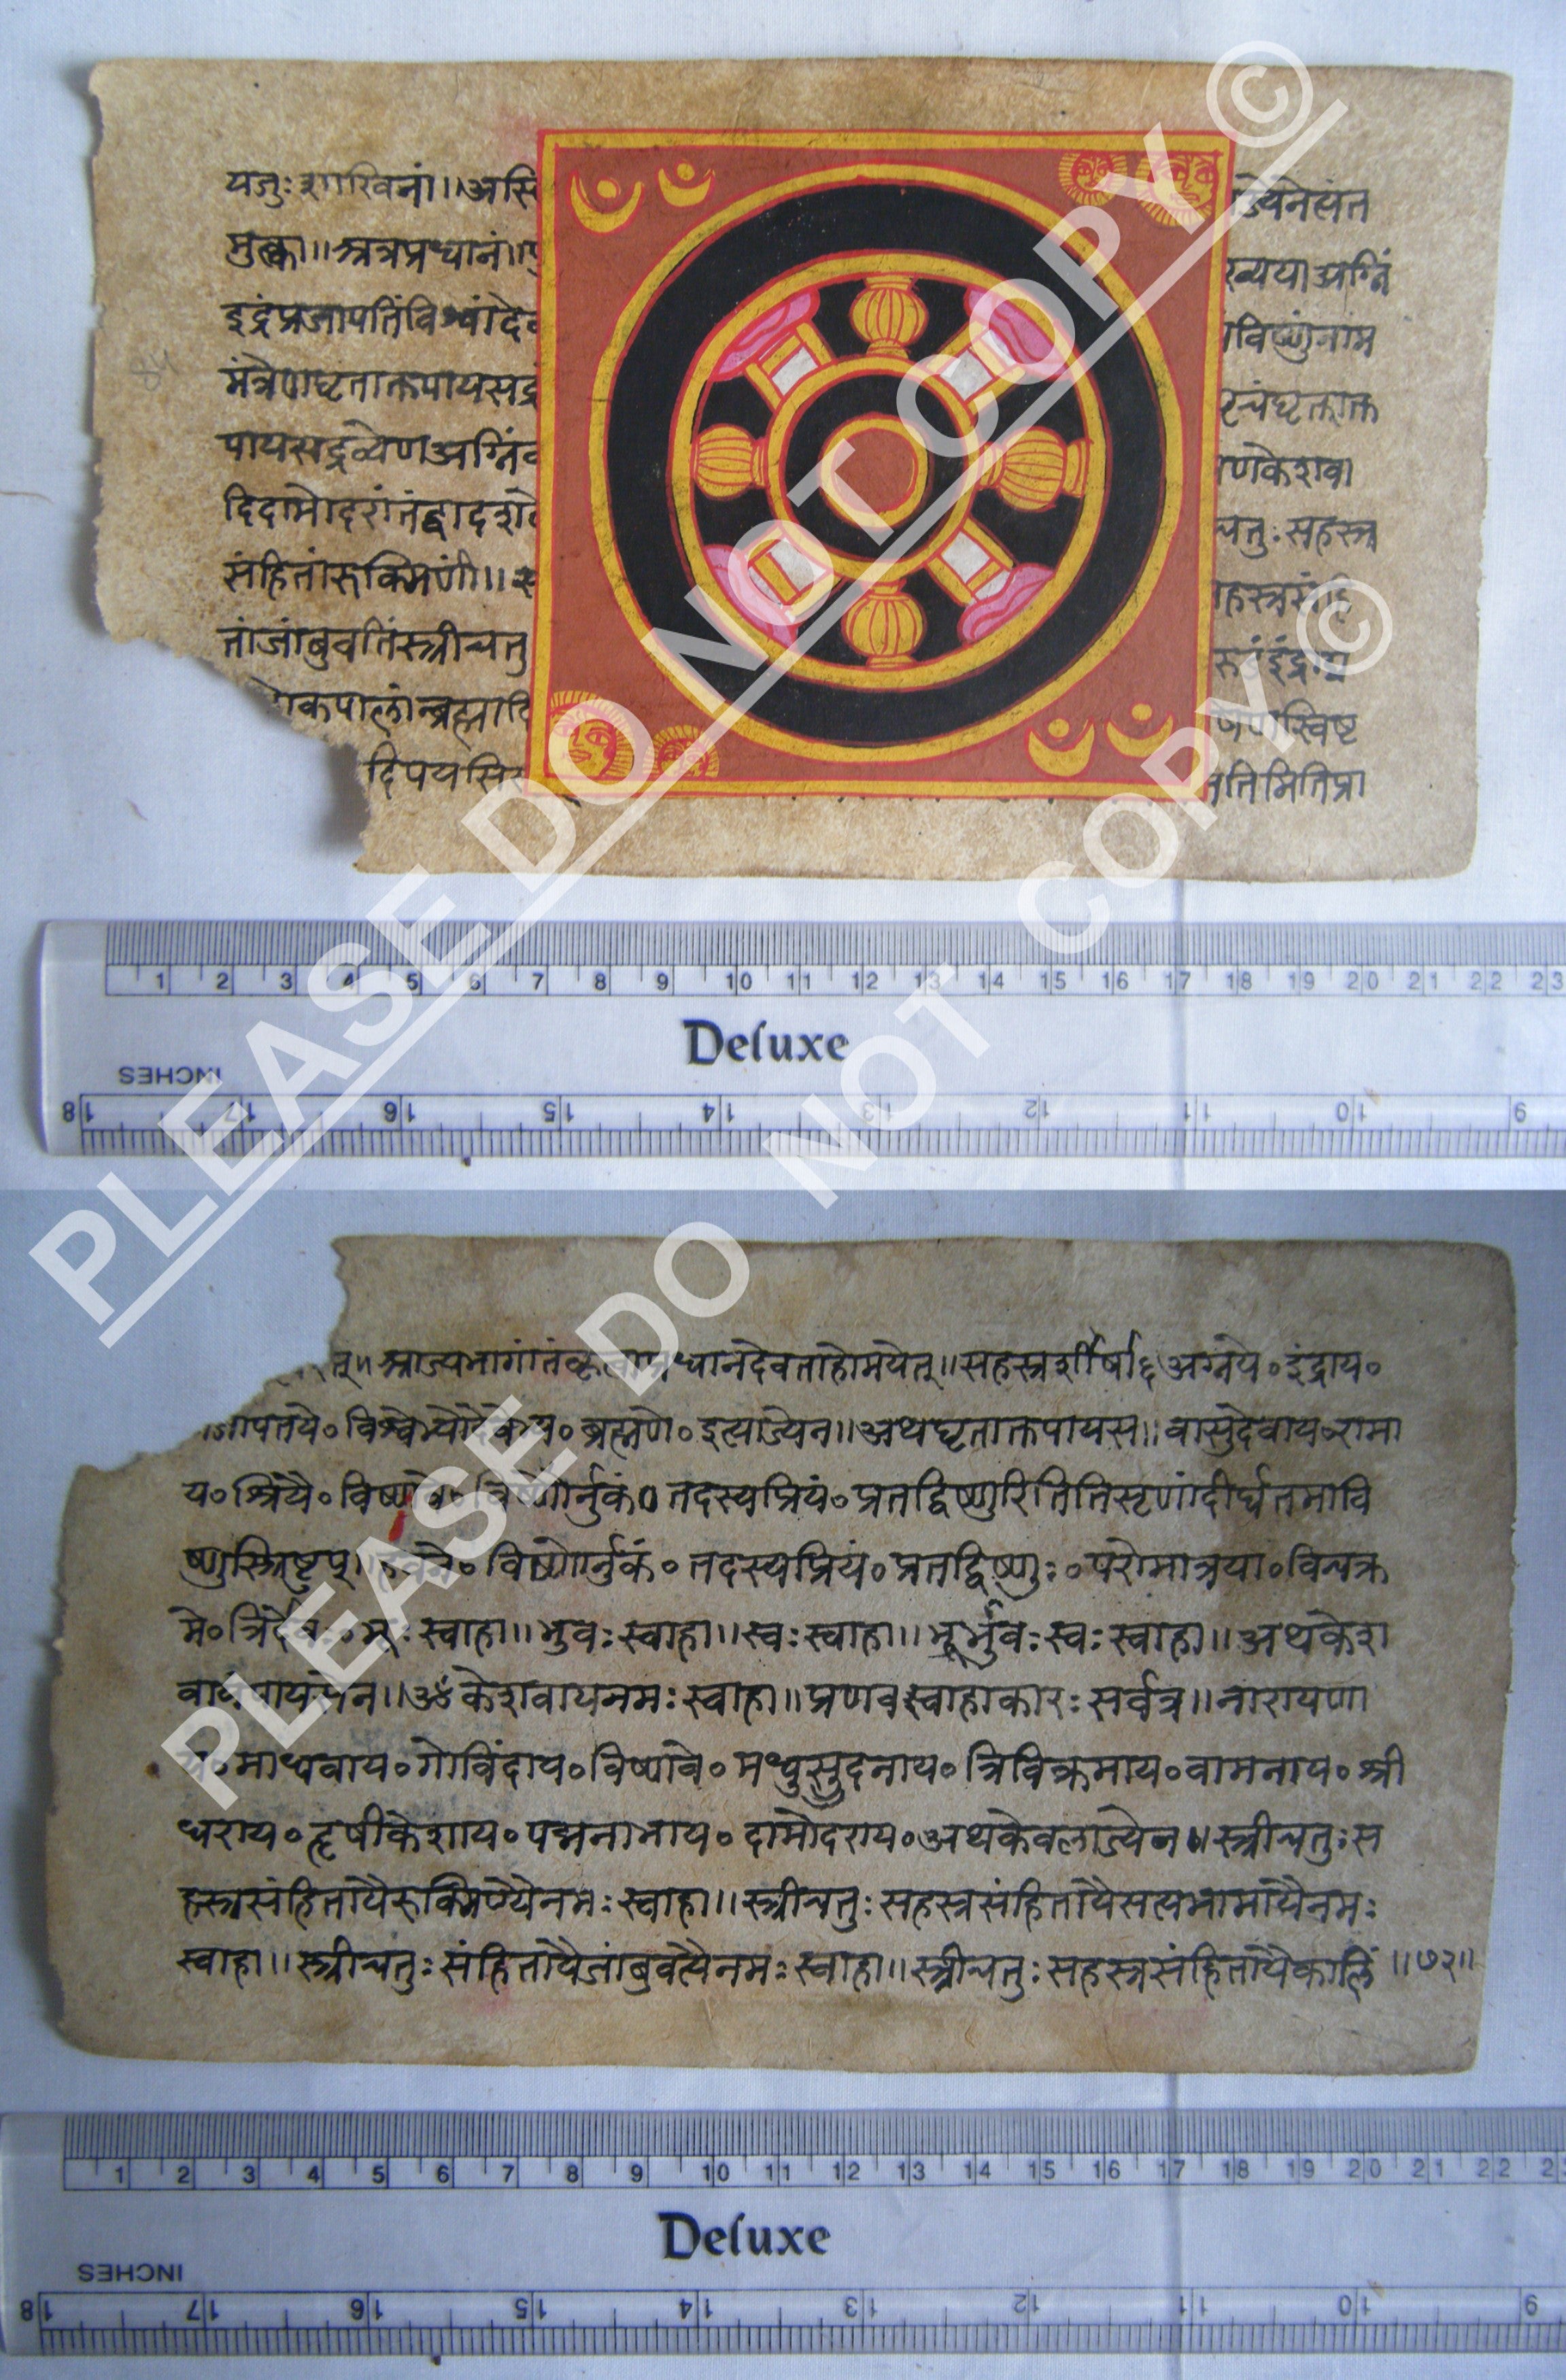 यजुः शाखिनां ॥ अस्मि ज्येनेत्यंत
मुत्का ॥ अत्रप्रधानं ॥ रव्यया अग्निं
इंद्रंप्रजापतिंविश्वांदेव विष्णुंनाम
मंत्रेणघृताक्तपायसद्र
पायसद्रव्येणअग्निंव णकेशवा
दिदामोदरांतंद्वादश चतुः सहस्त्र
संहितांरुक्मिणीं ॥ हस्त्रसंहि
तांजांबुवतिंस्त्रीचतु
कपालान्ब्रह्मादि स्विष्ट
दिपयसि तिमितिप्रा
1 2 3 4 5 6 7 8 9 10 11 12 13 14 15 16 17 18 19 20 21 22 23
Deluxe
INCHES
18 17 16 15 14 13 12 11 10 9
त् ॥ आज्यभागांतंकृत्वाप्रधानदेवताहोमयेत् ॥ सहस्त्रशीर्षा६ अग्नये ॰ इंद्राय ॰
जापतये ॰ विश्वेभ्योदेवेभ्य ॰ ब्रह्मणे ॰ इत्याज्येन ॥ अथघृताक्तपायस ॥ वासुदेवाय ॰ रामा
य ॰ श्रियै ॰ विष्णवे ॰ विष्णोर्नुकं ॰ तदस्यप्रियं ॰ प्रतद्विष्णुरितितिसृणांदीर्घतमावि
ष्णुस्त्रिष्टुप् ॥ हवने ॰ विष्णोर्नुकं ॰ तदस्यप्रियं ॰ प्रतद्विष्णुः ॰ परोमात्रया ॰ विचक्र
मे ॰ त्रिर्देवः ॰ भूः स्वाहा ॥ भुवः स्वाहा ॥ स्वः स्वाहा ॥ भूर्भुवः स्वः स्वाहा ॥ अथकेश
वादिपायसेन ॥ ॐ केशवायनमः स्वाहा ॥ प्रणवस्वाहाकारः सर्वत्र ॥ नारायणा
य ॰ माधवाय ॰ गोविंदाय ॰ विष्णवे ॰ मधुसुदनाय ॰ त्रिविक्रमाय ॰ वामनाय ॰ श्री
धराय ॰ हृषीकेशाय ॰ पद्मनाभाय ॰ दामोदराय ॰ अथकेवलाज्येन ॥ स्त्रीचतुः स
हस्त्रसंहितायैरुक्मिण्यैनमः स्वाहा ॥ स्त्रीचतुः सहस्त्रसंहितायैसत्यभामायैनमः
स्वाहा ॥ स्त्रीचतुः संहितायैजांबुवत्यैनमः स्वाहा ॥ स्त्रीचतुः सहस्त्रसंहितायैकालिं ॥ ७२ ॥
1 2 3 4 5 6 7 8 9 10 11 12 13 14 15 16 17 18 19 20 21 22 2
Deluxe
INCHES
18 17 16 15 14 13 12 11 10 9
PLEASE DO NOT COPY ©
PLEASE DO NOT COPY ©